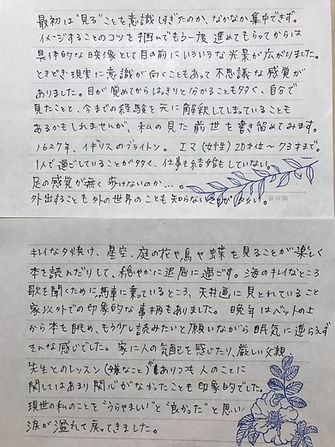 最初は"見る"ことも意識しすぎたのか、なかなか集中できず。
イメージすることのコツを掴んでもう一度進めてもらってからは
具体的な映像として目の前にいろいろな光景が広がりました。
ときどき現実に意識が向くこともあって不思議な感覚が
ありました。目が覚めてからはっきりと分かることも多く、自分で
見たことと、今までの経験を元に解釈してしまっていることも
あるかもしれませんが、私の見た前世を書き留めてみます。
1627年、イギリスのブライトン。エマ(女性) 20才位〜73才まで。
1人で過ごしていることが多く、仕事も結婚もしていない。
足の感覚が無く歩けないのか…。
外出することも外の世界のことも知らない
キレイな夕焼け、星空、庭の花や鳥や蝶を見ることが楽しく
本を読んだりして、穏やかに退屈に過ごす。海のキレイなところ
歌を聞くために馬車に乗っているところ、天井画に見とれていること
家以外での印象的な事も
ありました。晩年はベッドの上
から本を眺め、もう少し読みたいと願いながら眠気に逆らえず
そんな感じでした。家に人の気配を感じたり、厳しい父親
先生とのレッスン(嫌なこと)もありつつ人のことに
関してはあまり関心がなかったことも印象的でした。
現世の私のことを"うらやましい"と"良かった"と思い
涙が溢れて戻ってきました。